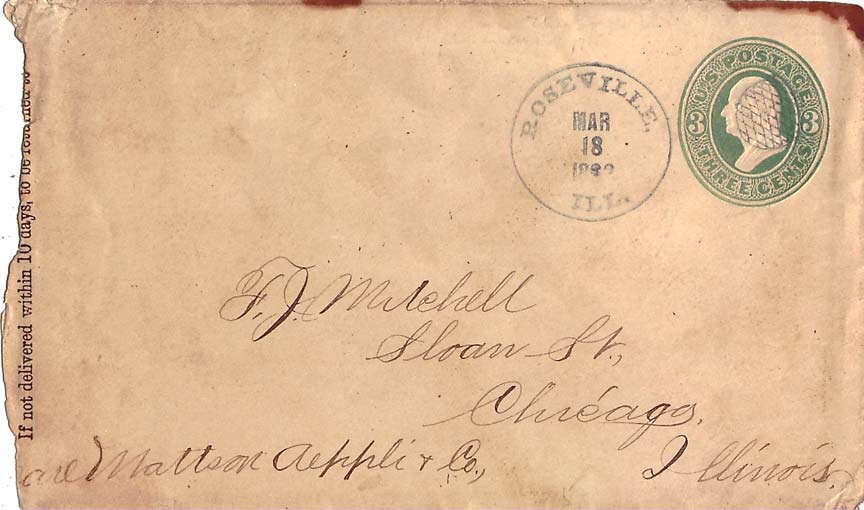 If not delivered within 10 days, to be returned to
ROSEVILLE,
MAR
18
ILL.
U.S. POSTAGE
3 3
THREE CENTS
F. J. Mitchell
Sloan St.,
Chicago,
Illinois.
Mattson Aeppli & Co.,